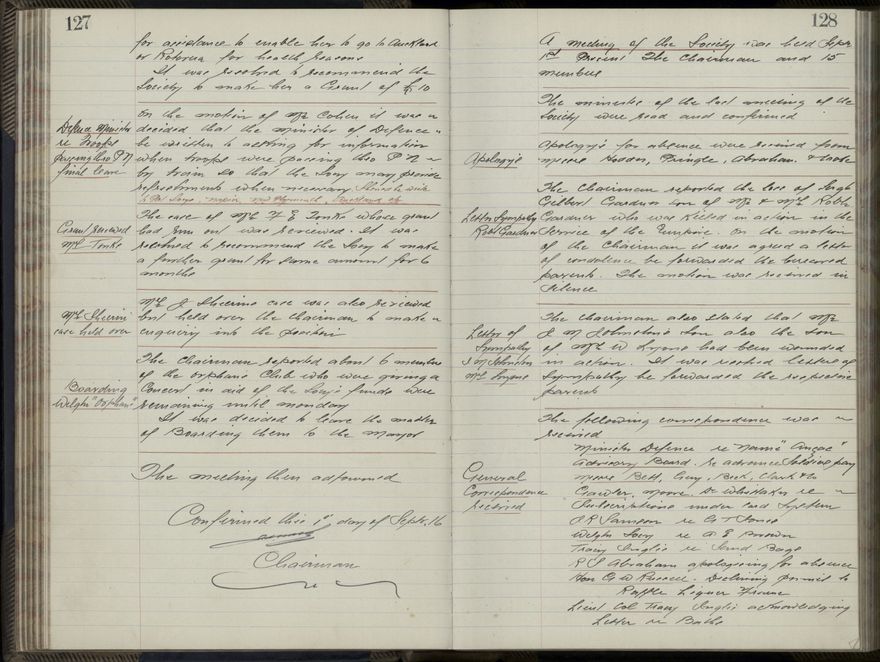 127
for assistance to enable her to go to Auckland
or Rotorua for health reasons
It was resolved to recommend the
Society to make her a Grant of £10
On the motion of Mr Cohen it was
decided that the Minister of Defence
be written to asking for information
when troops were passing thro P.N.
by train so that the Socy may provide
refreshments when necessary
Defence Minister
re Troops
passing thro P N
final leave
The case of Mrs F E Tonks whose grant
had run out was reviewed. It was
resolved to recommend the Socy to make
a further grant for same amount for 6
months
Grant reviewed
Mrs Tonks
Mrs J case was also reviewed
but held over the Chairman to make
enquiry into the position
case held over
The Chairman reported about 6 members
of the orphans Club who were giving a
Concert in aid of the Socy's funds were
remaining until monday
It was decided to leave the matter
of Boarding them to the Mayor
Boarding
Welgtn "Orphans"
The meeting then adjourned
Confirmed this 1st day of Septr. 16
Chairman
128
A meeting of the Society was held Septr
1st Present The Chairman and 15
members
The minutes of the last meeting of the
Society were read and confirmed
Apology's
Apology's for absence were received from
Messrs Hodder, Pringle, Abraham &
The Chairman reported the loss of Hugh
Gilbert Gardner son of Mr & Mrs Robt
Gardner who was killed in action in the
Service of the Empire. On the motion
of the Chairman it was agreed a letter
of condolence be forwarded the bereaved
parents. The motion was received in
silence
Letter Sympathy
Robt Gardner
The Chairman also stated that Mr
J M Johnston's Son also the Son
of Mrs W Lyons had been wounded
in action. It was resolved letters of
Sympathy be forwarded the respective
parents
Letter of
Sympathy
J M Johnston
Mrs Lyons
The following correspondence was
received
General
Correspondence
received
Minister Defence re Name "Anzac"
Advisory Board. re advance Soldiers pay
Messrs Bett, Guy, Beck, Clark & Co
Moore. Dr Whittaker re
Subscriptions under card System
O R Samson re G T Jones
Welgtn Socy re A E Brown
Tracy Inglis re Sand Bags
R S Abraham apologising for absence
Hon G W Russell. Declining permit to
Raffle Liquer
Lieut Col Tracy Inglis acknowledging
Letter re Baths